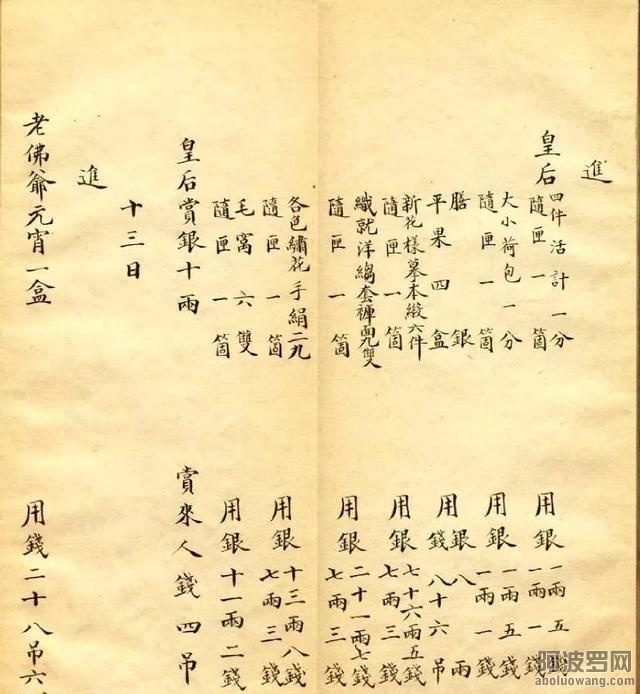 進
皇后 四件活計一分 用銀 一兩五錢
隨匣一箇 一兩一錢
大小荷包一分 用銀 一兩五錢
隨匣一箇 一兩一錢
膳銀 用銀八兩
平果四盒 錢八十六吊
新花樣摹本緞六件 用銀 七十六兩五錢
隨匣一箇
織就洋縐套褲面九雙 用銀 二十一兩七錢
隨匣一箇 七兩三錢
各色繡花手絹二九 用銀 十三兩八錢
隨匣一箇 七兩三錢
毛窩六雙 用銀十一兩二錢
隨匣一箇
皇后賞銀十兩 賞來人錢四吊
十三日
進
老佛爺元宵一盒 用錢二十八吊六
阿波罗网
aboluowang.com